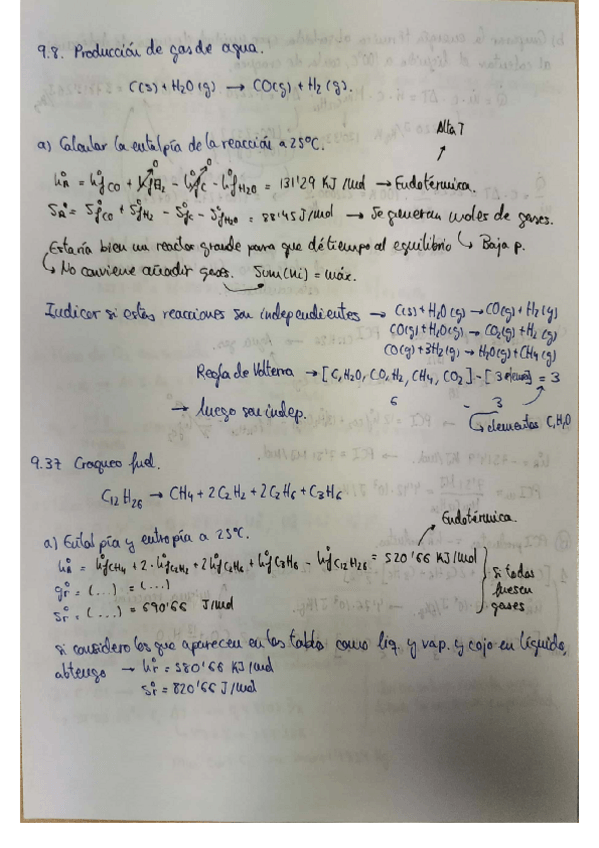 9.8. Producción de gas de agua.
C(s) + H2O(g) → CO(g) + H2(g).
Alta T
a) Calcular la entalpía de la reacción a 25ºC.
hºR = hºf CO + hºf H2 - hºf C - hºf H2O = 131'29 KJ/mol → Endotérmica.
SºR = Sºf CO + Sºf H2 - Sºf C - Sºf H2O = 88'45 J/mol → Se generan moles de gases.
Estaría bien un reactor grande para que dé tiempo al equilibrio ↳ Baja p.
↳ No conviene añadir gases. Sum(ni) = máx.
Indicar si estas reacciones son independientes → C(s) + H2O(g) → CO(g) + H2(g)
CO(g) + H2O(g) → CO2(g) + H2(g)
CO(g) + 3H2(g) → H2O(g) + CH4(g)
Regla de Volterra → [C, H2O, CO, H2, CH4, CO2] - [3 elem] = 3
6 - 3
→ luego son indep. ↳ elementos C, H, O
9.37 Craqueo fuel.
C12H26 → CH4 + 2C2H2 + 2C2H6 + C3H6
Endotérmica.
a) Entalpía y entropía a 25ºC.
hºR = hºf CH4 + 2·hºf C2H2 + 2hºf C2H6 + hºf C3H6 - hºf C12H26 = 520'66 KJ/mol
gºr = (...) = (...)
sºr = (...) = 690'66 J/mol
si todos fuesen gases
si considero los que aparecen en las tablas como líq. y vap. y cojo en líquido,
obtengo → hºr = 580'66 KJ/mol
sºr = 820'66 J/mol